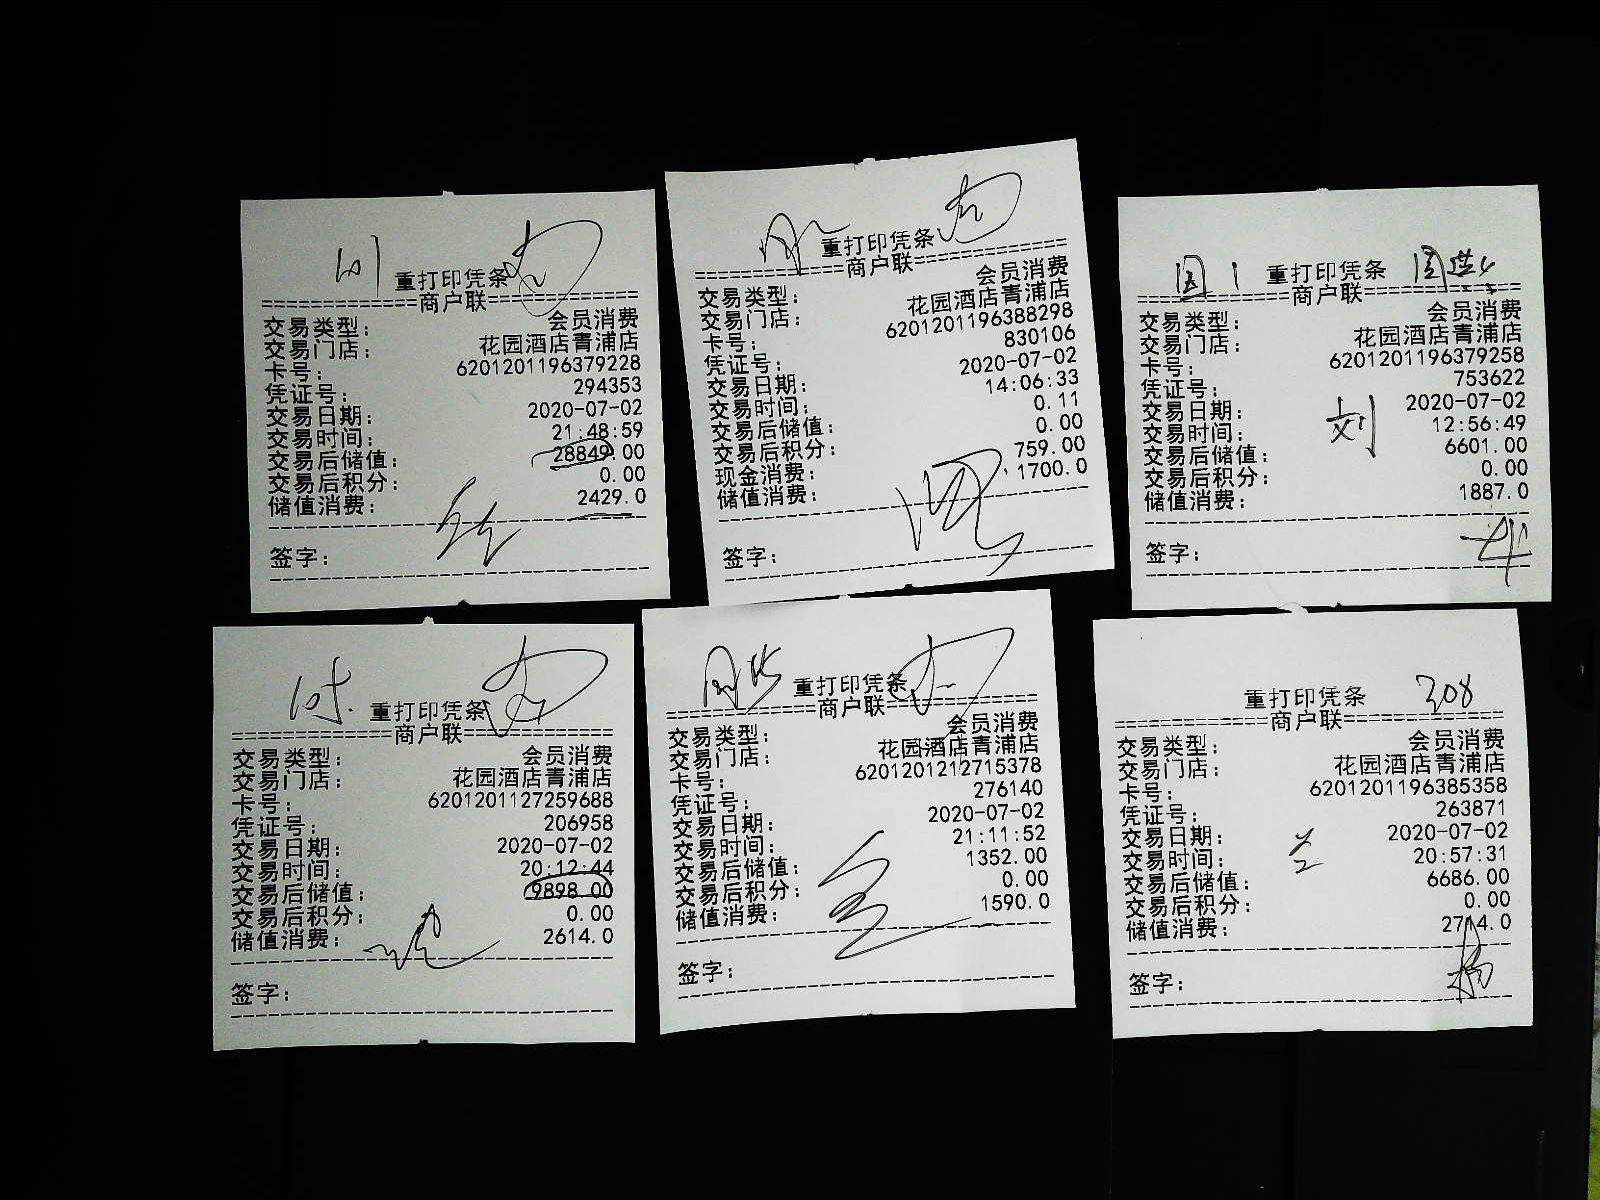 重打印凭条
================商户联================
交易类型： 会员消费
交易门店： 花园酒店青浦店
卡号： 6201201196379228
凭证号： 294353
交易日期： 2020-07-02
交易时间： 21:48:59
交易后储值： 28849.00
交易后积分： 0.00
储值消费： 2429.0
签字：
重打印凭条
================商户联================
交易类型： 会员消费
交易门店： 花园酒店青浦店
卡号： 6201201196388298
凭证号： 830106
交易日期： 2020-07-02
交易时间： 14:06:33
交易后储值： 0.11
交易后积分： 0.00
现金消费： 759.00
储值消费： 1700.0
签字：
重打印凭条
================商户联================
交易类型： 会员消费
交易门店： 花园酒店青浦店
卡号： 6201201196379258
凭证号： 753622
交易日期： 2020-07-02
交易时间： 12:56:49
交易后储值： 6601.00
交易后积分： 0.00
储值消费： 1887.0
刘
签字：
重打印凭条
================商户联================
交易类型： 会员消费
交易门店： 花园酒店青浦店
卡号： 6201201127259688
凭证号： 206958
交易日期： 2020-07-02
交易时间： 20:12:44
交易后储值： 9898.00
交易后积分： 0.00
储值消费： 2614.0
签字：
重打印凭条
================商户联================
交易类型： 会员消费
交易门店： 花园酒店青浦店
卡号： 6201201212715378
凭证号： 276140
交易日期： 2020-07-02
交易时间： 21:11:52
交易后储值： 1352.00
交易后积分： 0.00
储值消费： 1590.0
签字：
重打印凭条 308
================商户联================
交易类型： 会员消费
交易门店： 花园酒店青浦店
卡号： 6201201196385358
凭证号： 263871
交易日期： 2020-07-02
交易时间： 20:57:31
交易后储值： 6686.00
交易后积分： 0.00
储值消费：
签字：